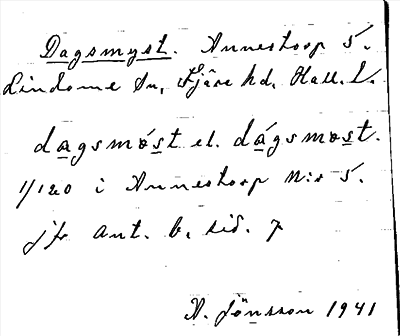 Dagsmyst. Annestorp 5.
Lindome Sn, Fjäre hd. Hall. L.
dagsmo´st el. da´gsmost.
1/120 i Annestorp N:o 5.
jfr ant. b, sid. 7
A. Jönsson 1941